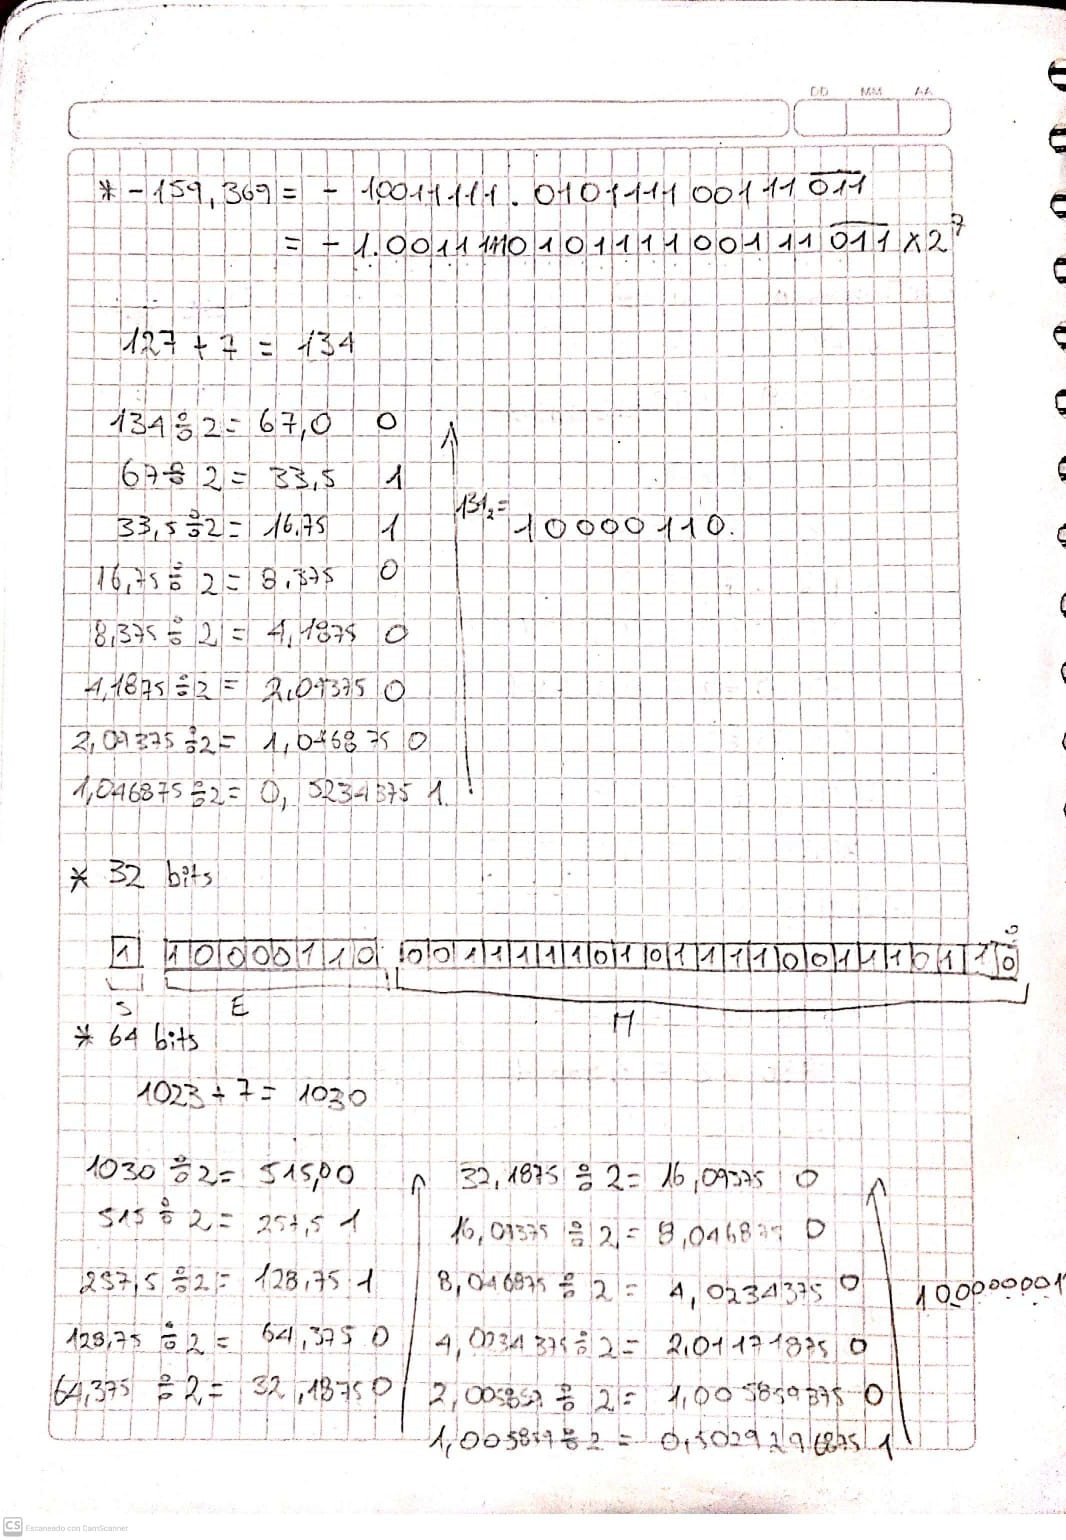 DD MM AA
* - 159,369 = - 10011111.010111100111011
= - 1.001111101011110011011 × 2^7
127 + 7 = 134
134 ÷ 2 = 67,0 0
67 ÷ 2 = 33,5 1
33,5 ÷ 2 = 16,75 1
131₂ = 10000110.
16,75 ÷ 2 = 8,375 0
8,375 ÷ 2 = 4,1875 0
4,1875 ÷ 2 = 2,09375 0
2,09375 ÷ 2 = 1,046875 0
1,046875 ÷ 2 = 0,5234375 1.
* 32 bits
1 10000110 00111110101111001110110
S E M
* 64 bits
1023 + 7 = 1030
1030 ÷ 2 = 515,0 0
515 ÷ 2 = 257,5 1
257,5 ÷ 2 = 128,75 1
128,75 ÷ 2 = 64,375 0
64,375 ÷ 2 = 32,1875 0
32,1875 ÷ 2 = 16,09375 0
16,09375 ÷ 2 = 8,046875 0
8,046875 ÷ 2 = 4,0234375 0
4,0234375 ÷ 2 = 2,01171875 0
2,005859 ÷ 2 = 1,005859375 0
1,005859 ÷ 2 = 0,5029296875 1
CS Escaneado con CamScanner